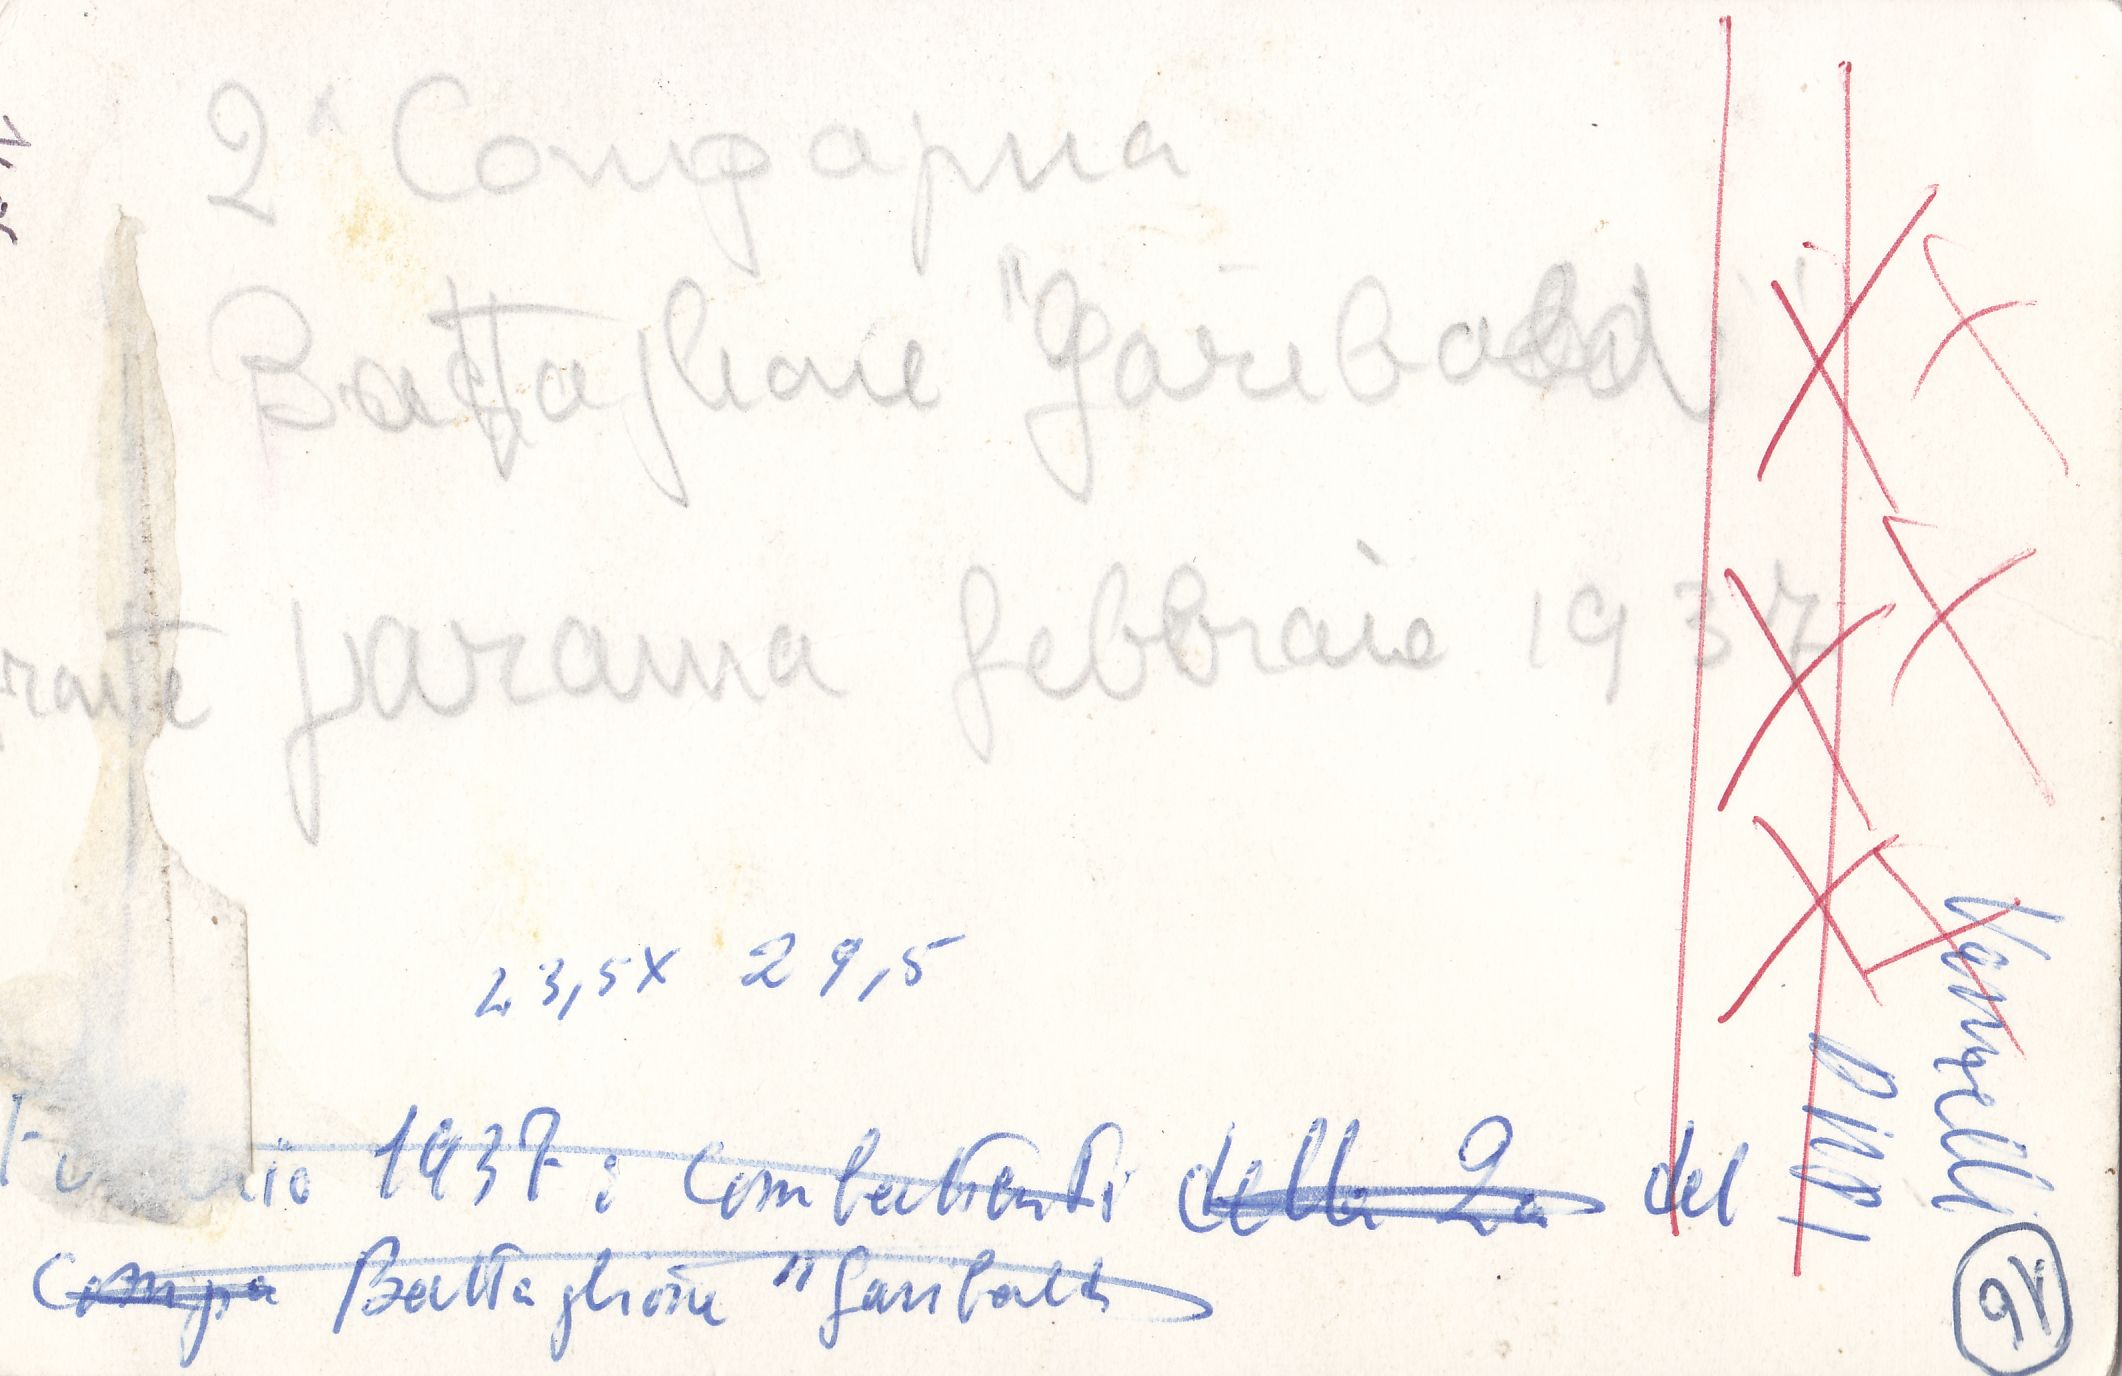 2ª Compapnia
Battaglione "Garibaldi"
fronte Jarama febbraio 1937
23,5 x 29,5
1937: Combattenti della 2a del
Compa Battaglione "Garibaldi
Vannelli